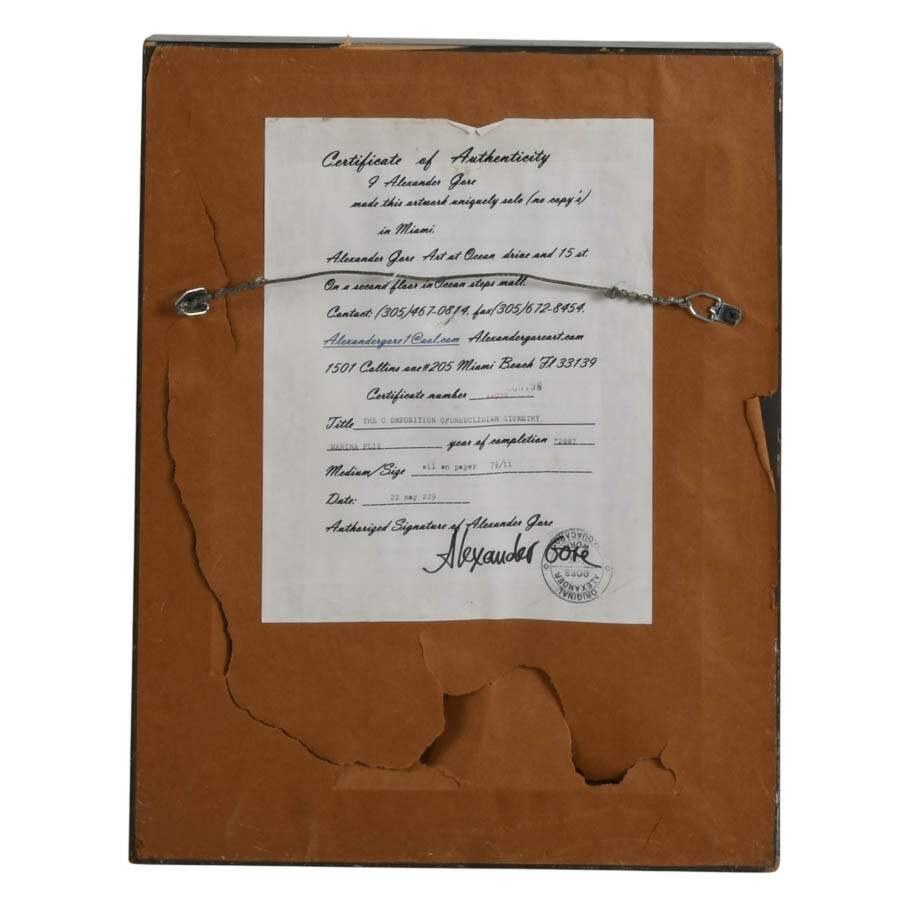 Certificate of Authenticity
I Alexander Gore
made this artwork uniquely solo (no copy's)
in Miami.
Alexander Gore Art at Ocean drive and 15 st.
On a second floor in Ocean steps mall.
Contact: (305)467-0814, fax(305)672-8454.
Alexandergore1@aol.com Alexandergoreart.com
1501 Collins ave#205 Miami Beach Fl 33139
Certificate number
Title THE C OMPOSITION OFUNEUCLIDIAN GIOMETRY
MARINA FLIE year of completion "2007
Medium/Size oil on paper 7½/11
Date: 22 may 229
Authorized Signature of Alexander Gore
Alexander Gore
ORIGINAL
ALEXANDER
WORK